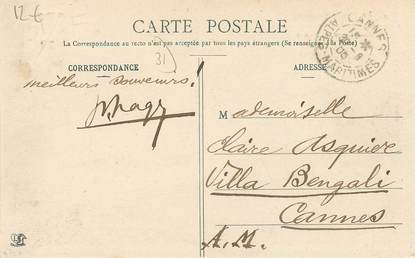 12 €
CARTE POSTALE
La Correspondance au recto n'est pas acceptée par tous les pays étrangers (Se renseigner à la Poste)
CORRESPONDANCE
31
ADRESSE
CANNES
ALPES-MARITIMES
meilleurs souvenirs.
Mademoiselle
Claire Asquier
Villa Bengali
Cannes
A.M.